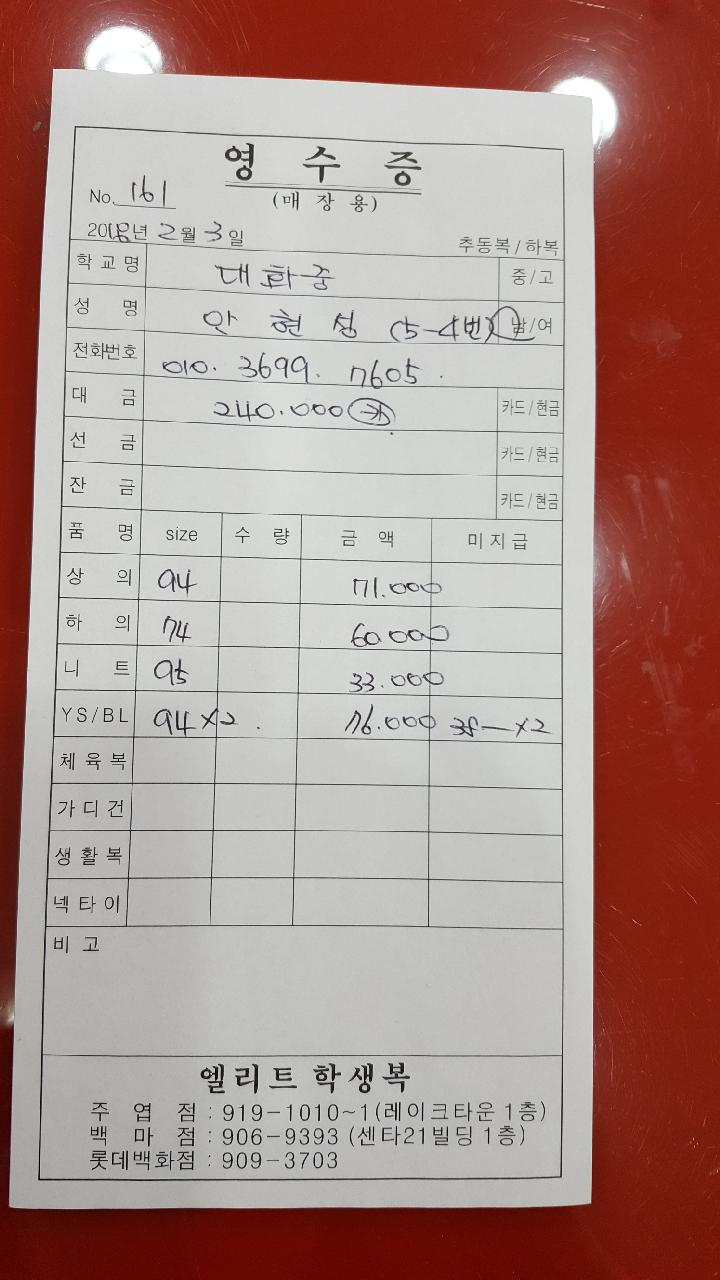 영 수 증
(매 장 용)
No. 161
2018년 2월 3일
추동복/하복
학교명 대화중 중/고
성 명 안 현 성 (5-4번) 남/여
전화번호 010. 3699. 7605.
대 금 240.000 카 카드/현금
선 금 카드/현금
잔 금 카드/현금
품 명 size 수 량 금 액 미지급
상 의 94 71.000
하 의 74 60.000
니 트 95 33.000
YS/BL 94 x2. 76.000 38— x2
체육복
가디건
생활복
넥타이
비 고
엘리트 학생복
주 엽 점 : 919-1010~1(레이크타운 1층)
백 마 점 : 906-9393 (센타21빌딩 1층)
롯데백화점 : 909-3703